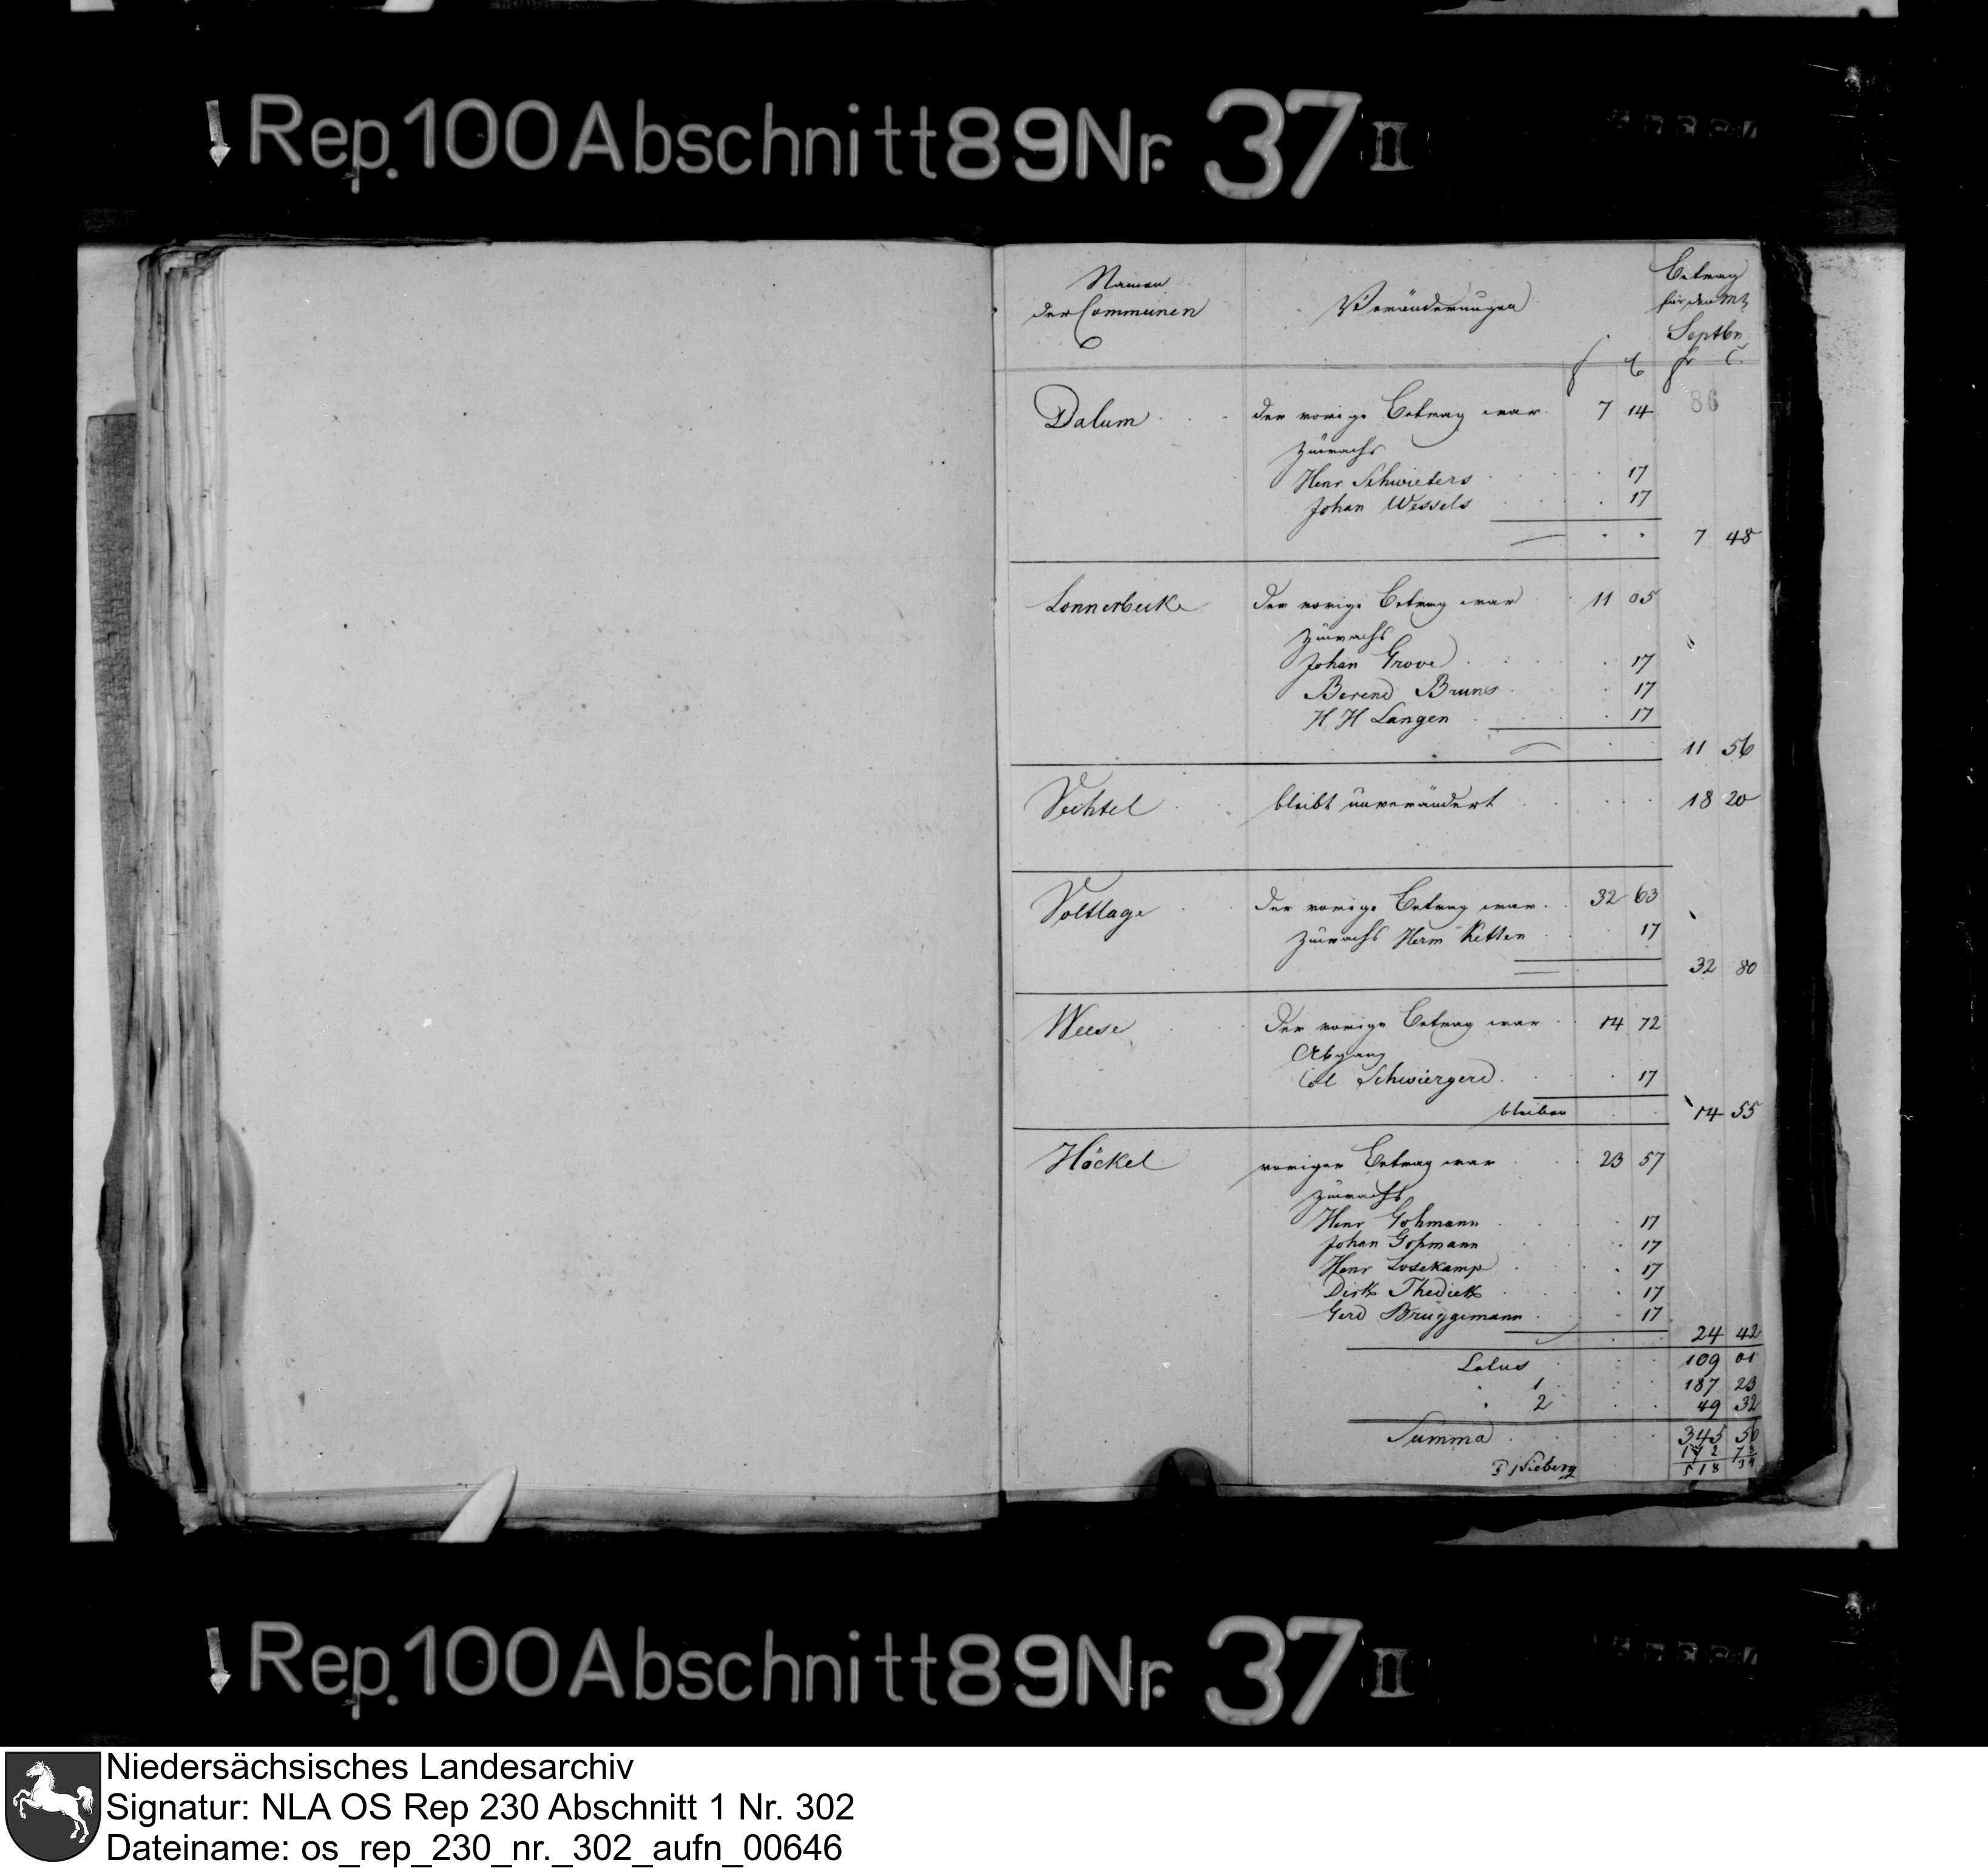 Rep. 100 Abschnitt 89 Nr. 37 II
Namen der Communen
Veränderungen
Betrag für den Mt Septbr
fr C. fr C.
86
Dalum der vorige Betrag war 7 14
Zuwachs
Henr Schwieters 17
Johan Wessels 17
7 48
Lonnerbecke der vorige Betrag war 11 05
Zuwachs
Johan Grove 17
Berend Bruns 17
H H Langen 17
11 56
Vechtel bleibt unverändert 18 20
Voltlage der vorige Betrag war 32 63
Zuwachs Herm Ketten 17
32 80
Weese Der vorige Betrag war 14 72
Abgang
Col Schwiergerd 17
bleiben 14 55
Höckel voriger Betrag war 23 57
Zuwachs
Henr Gohmann 17
Johan Goßmann 17
Henr Losekamp 17
Dirk Thedieck 17
Gerd Brüggemann 17
24 42
Latus 109 01
" 1 187 23
" 2 49 32
Summa 345 56
172 78
518 34
Sieberg
Rep. 100 Abschnitt 89 Nr. 37 II
Niedersächsisches Landesarchiv
Signatur: NLA OS Rep 230 Abschnitt 1 Nr. 302
Dateiname: os_rep_230_nr._302_aufn_00646